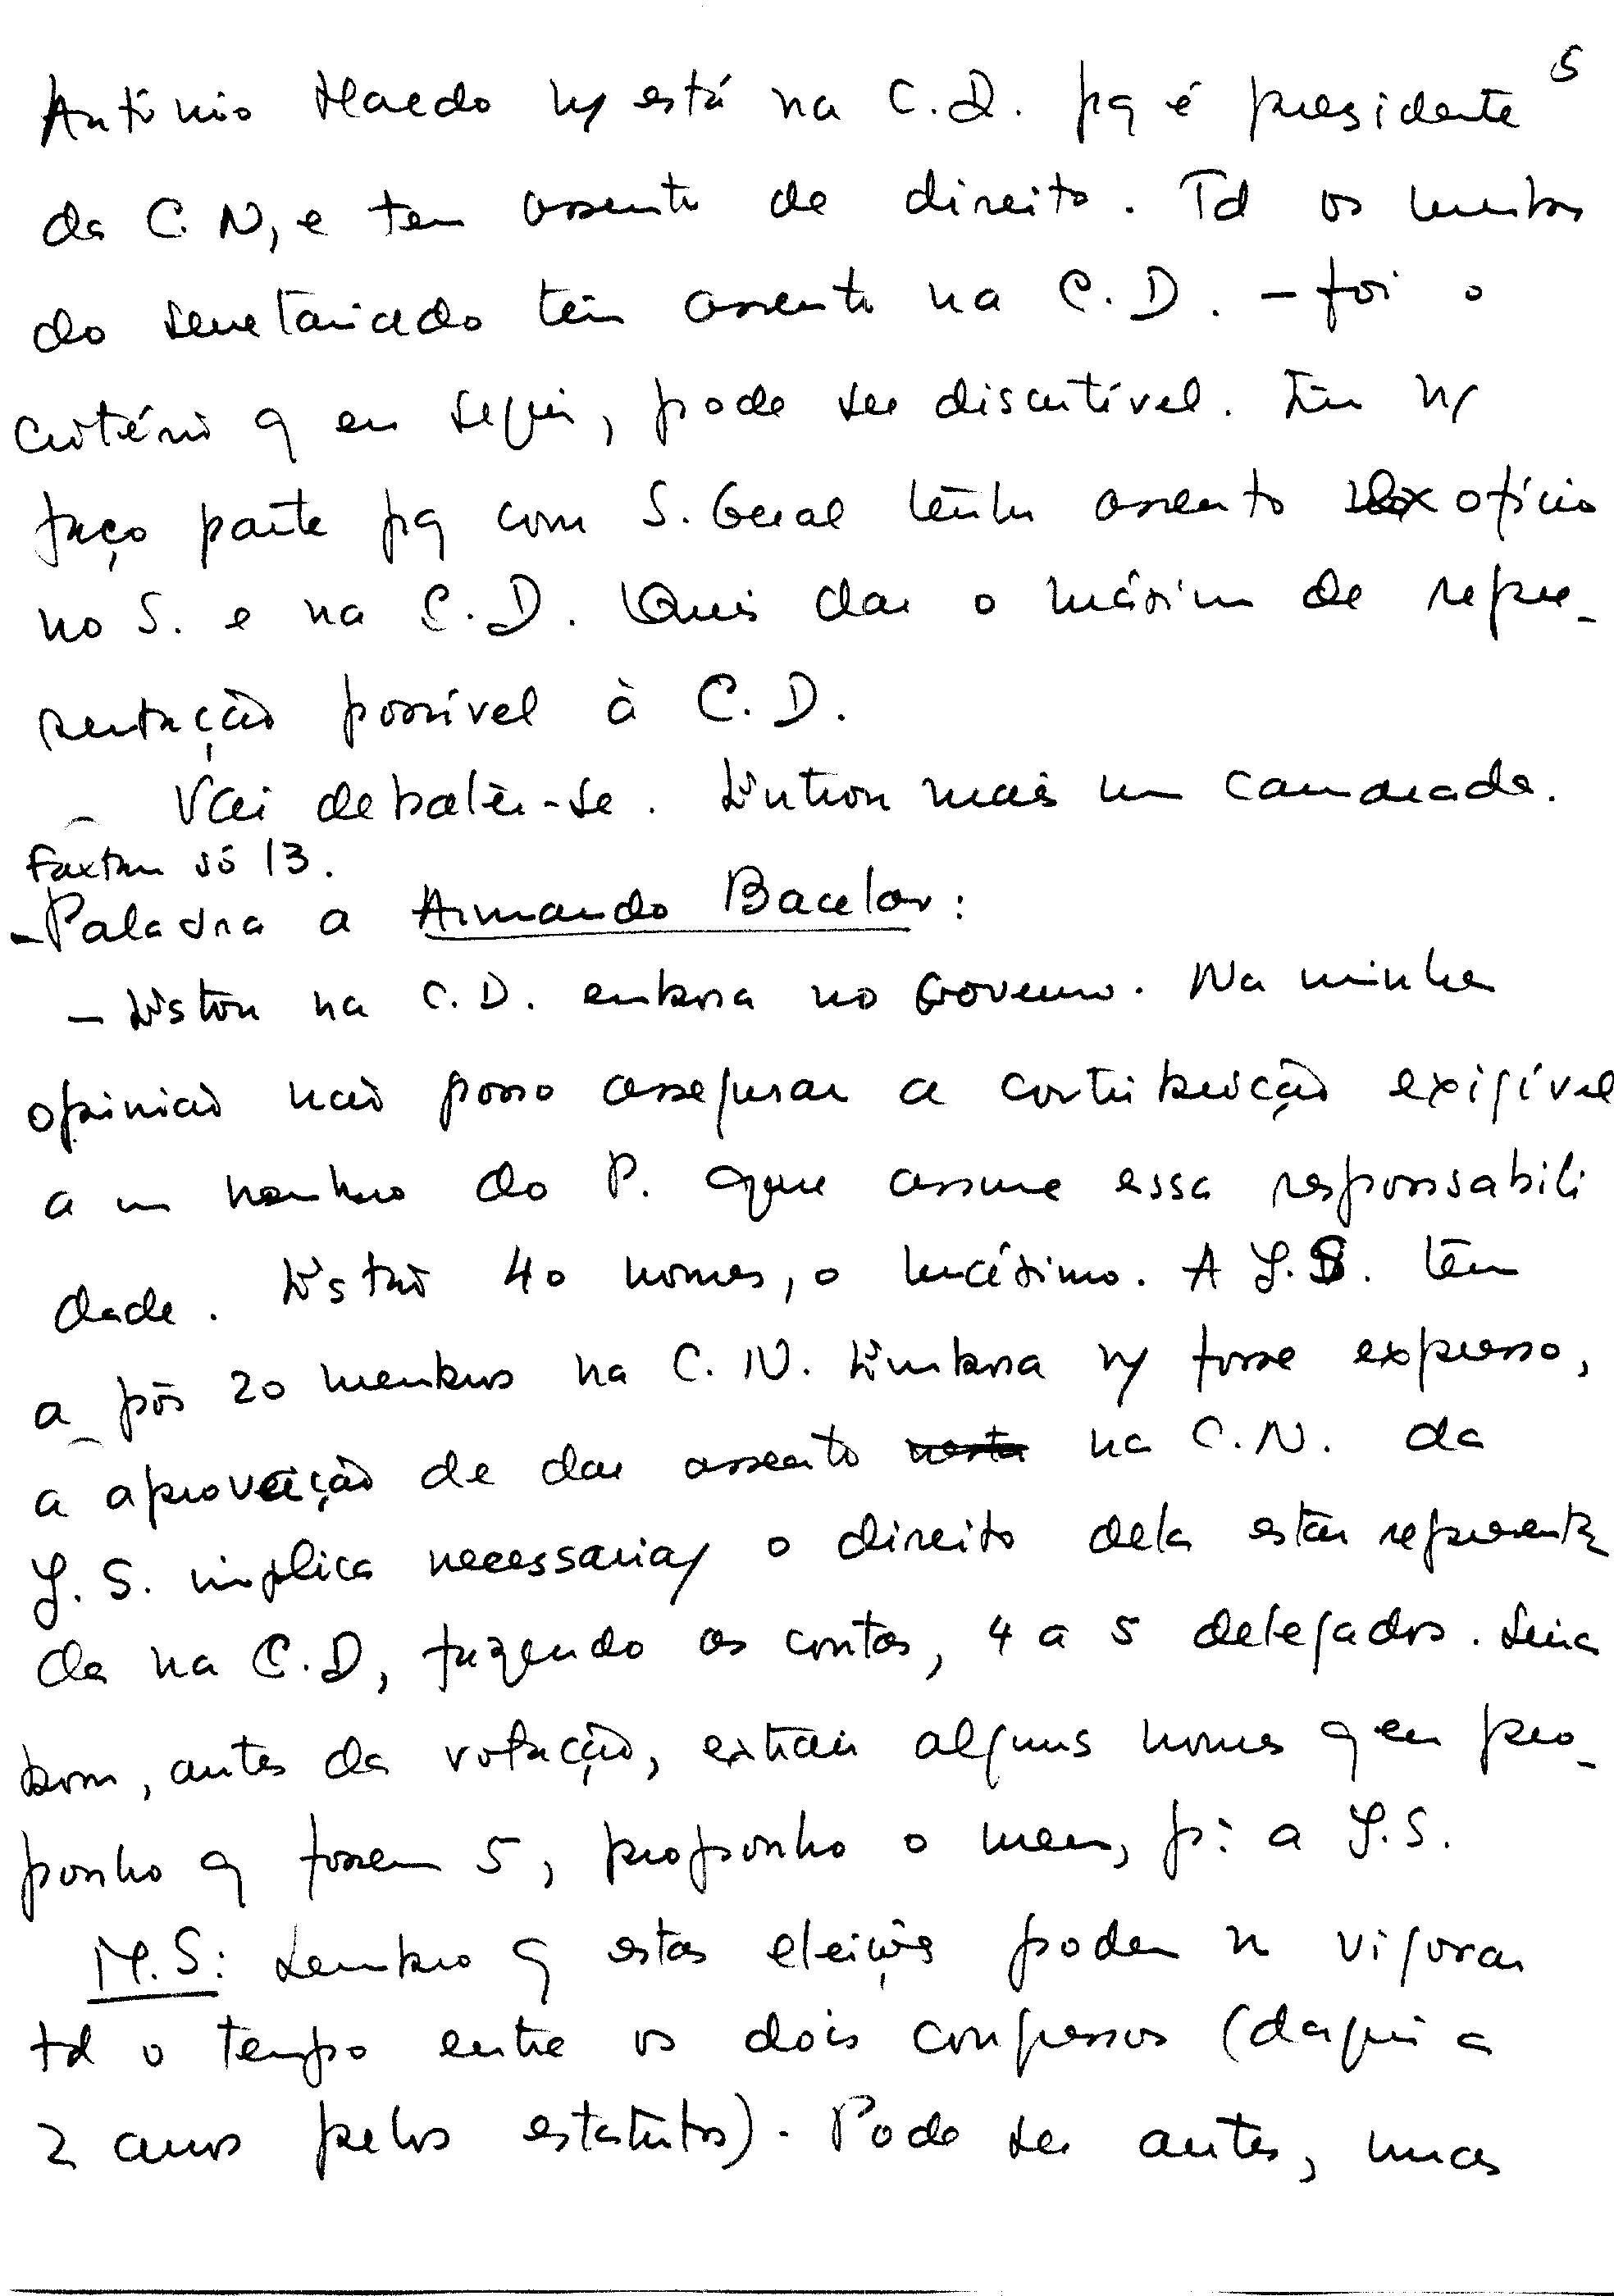 5
António Macedo ñ está na C.D. pq é presidente
da C.N, e tem assento de direito. Td os membros
do secretariado têm assento na C.D. – foi o
critério q eu segui, pode ser discutível. Eu ñ
faço parte pq com S. Geral tenho assento ex ofício
no S. e na C.D. Quis dar o máximo de repre-
sentação possível à C.D.
– Vai debater-se. Entrou mais um camarada.
Faltam só 13.
– Palavra a Armando Bacelar:
– Estou na C.D. embora no Governo. Na minha
opinião não posso assegurar a contribuição exigível
a um membro do P. que assume essa responsabili
dade. Estão 40 nomes, o máximo. A J.S. tem
a pôs 20 membros na C.N. Embora ñ fosse expresso,
a aprovação de dar assento na C.N. da
J.S. implica necessaria/ o direito dela estar representa
da na C.D, fazendo as contas, 4 a 5 delegados. Seria
bom, antes da votação, extrair alguns nomes q eu pro-
ponho q fossem 5, proponho o meu, p: a J.S.
M.S: Lembro q estas eleições podem ñ vigorar
td o tempo entre os dois congressos (daqui a
2 anos pelos estatutos). Pode ser antes, mas